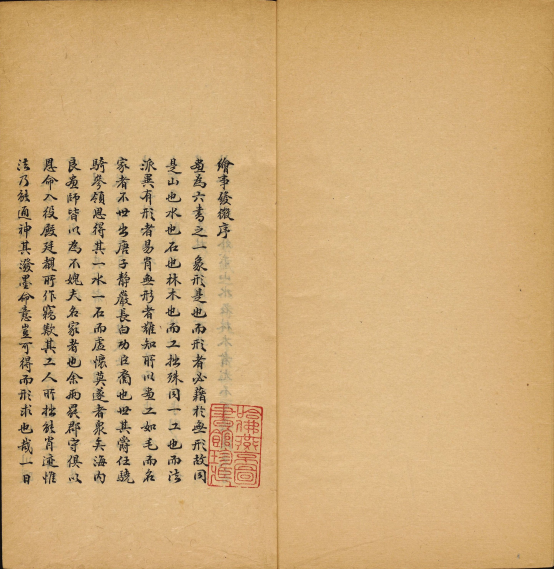 繪事發微序
畫為六書之一象形是也而形者必藉於無形故同
是山也水也石也林木也而工拙殊同一工也而法
派異有形者易肖無形者難知所以畫工如毛而名
家者不世出唐子靜巖長白功臣裔也世其爵任驍
騎參領恩得其一水一石而虛懷莫遂者衆矣海內
良畫師皆以為不媿夫名家者也余兩罷郡守俱以
恩命入役殿廷覩所作竊歎其工人所拙能肖迹惟
法乃能通神其潑墨命意豈可得而形求也哉一日
哈佛燕京圖
書館珍藏